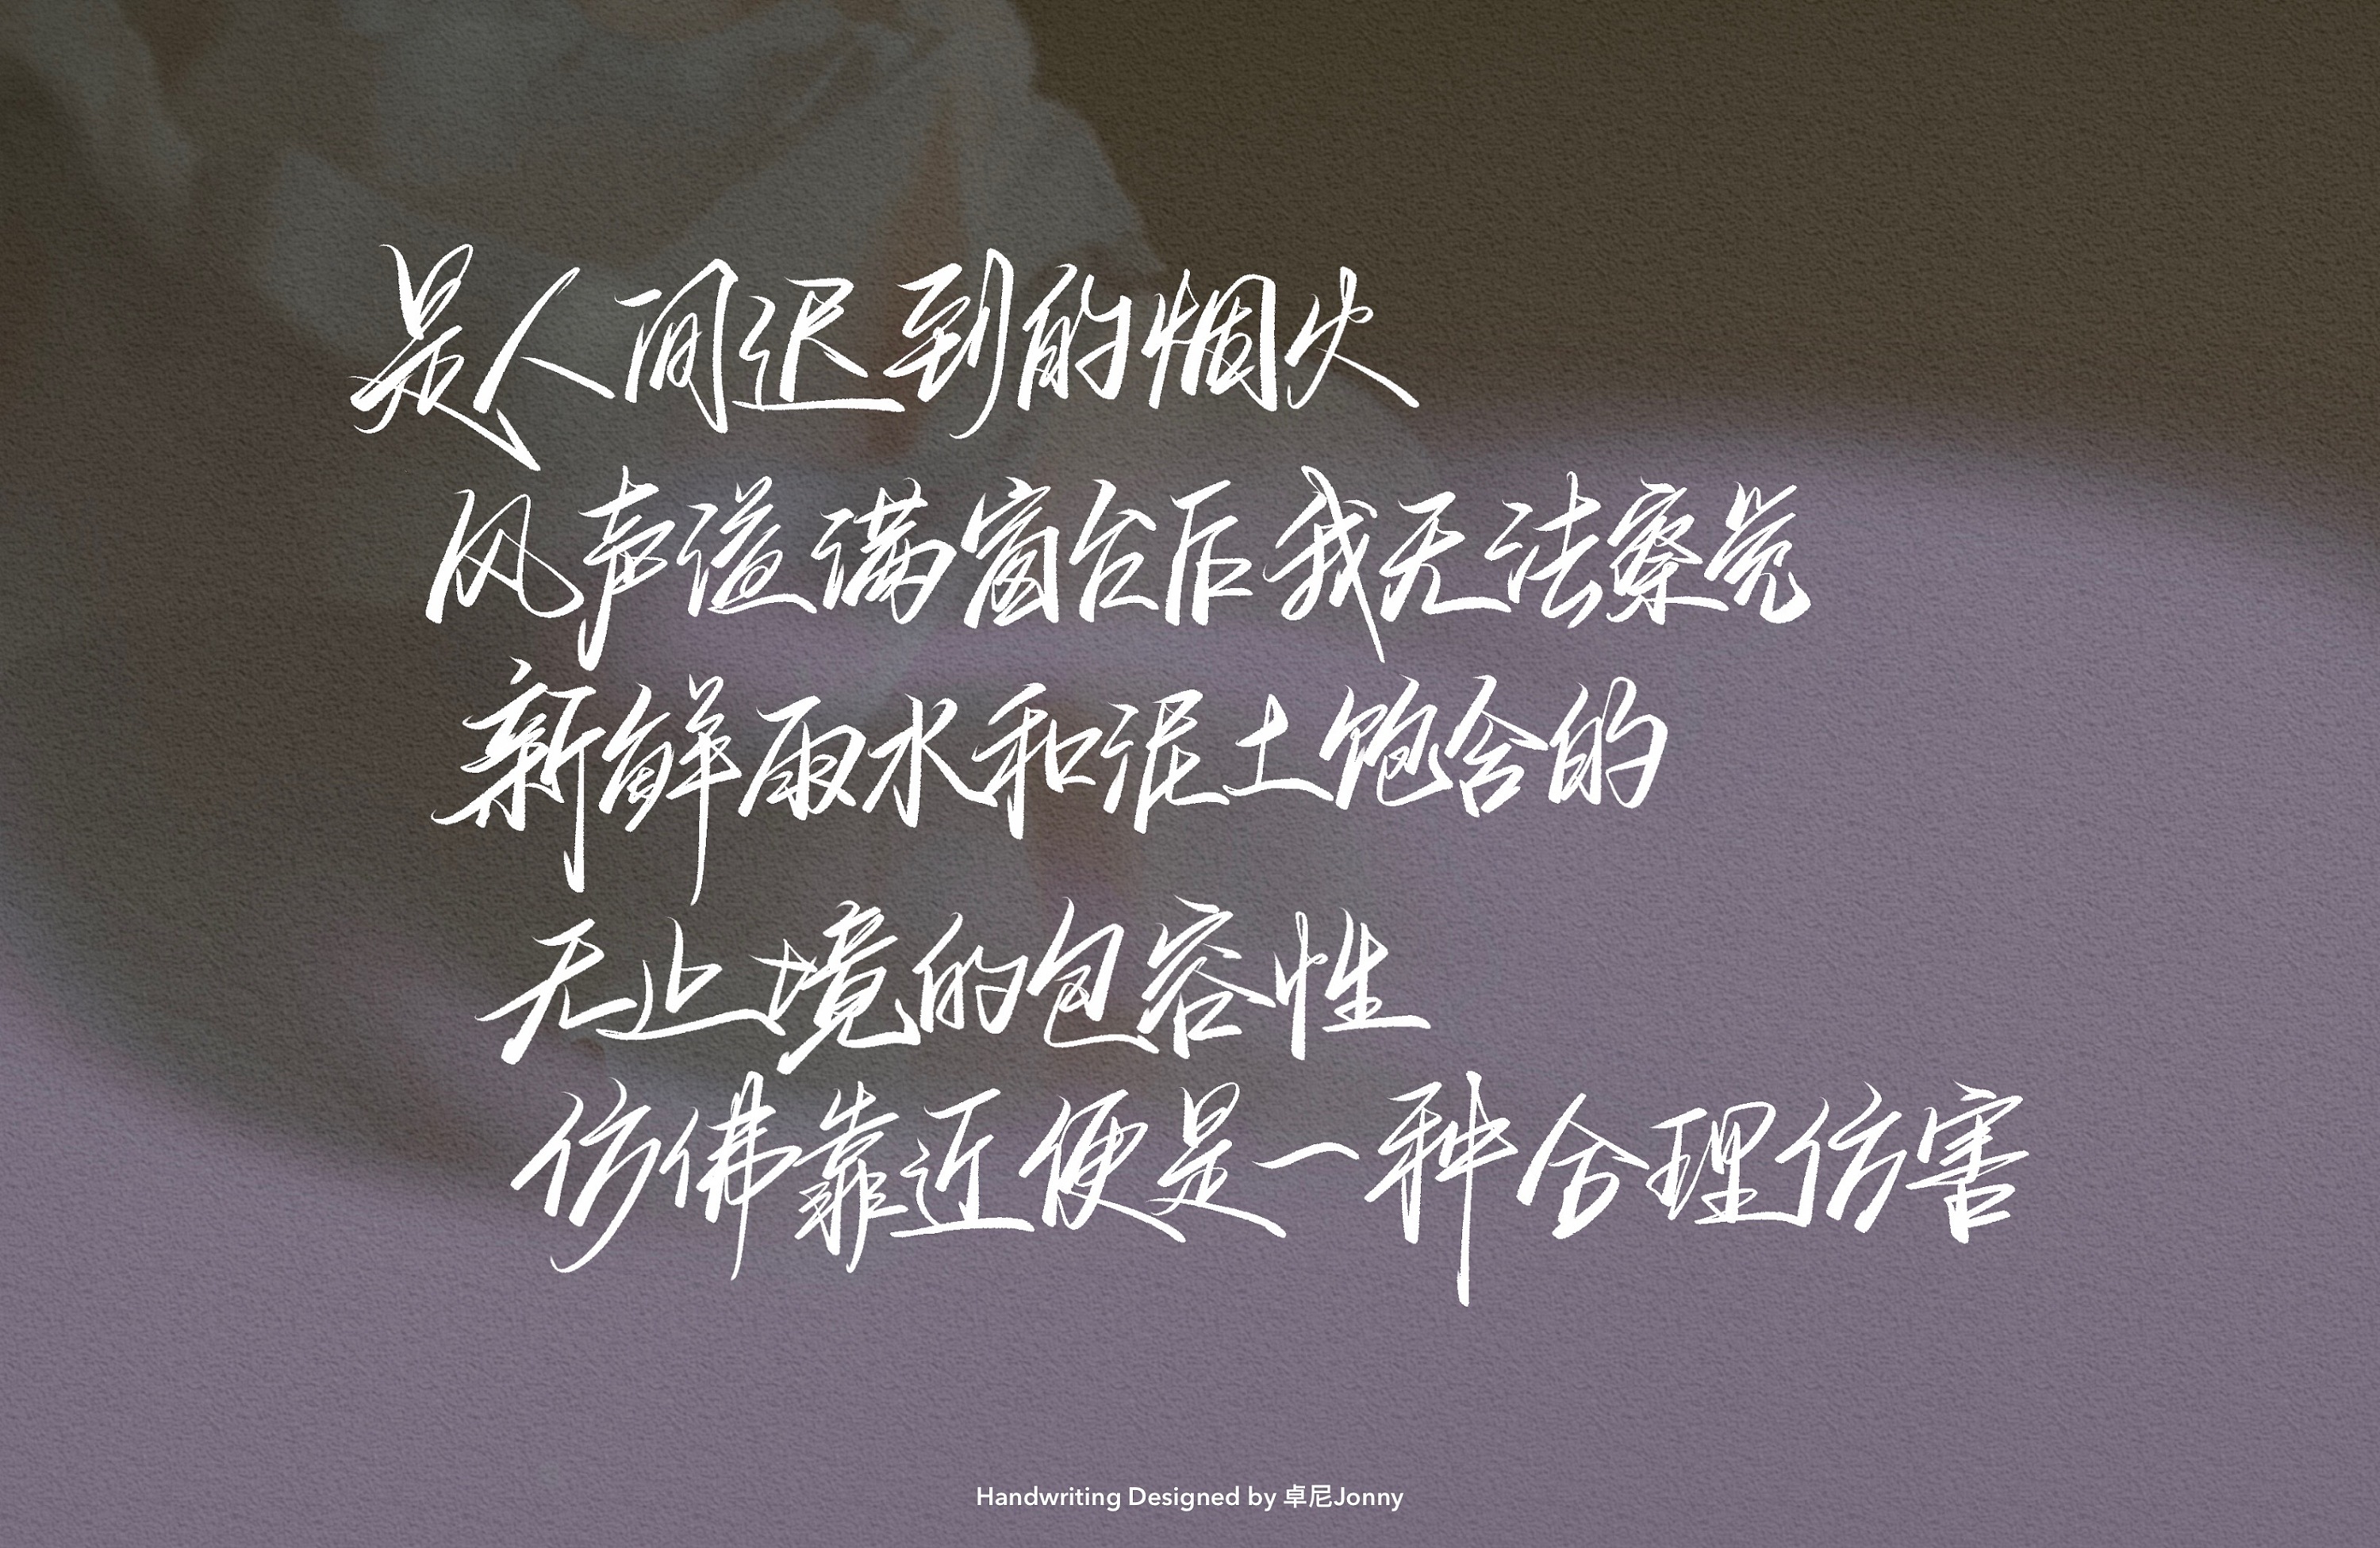 是人间迟到的烟火
风声溢满窗台后我无法察觉
新鲜雨水和泥土饱含的
无止境的包容性
仿佛靠近便是一种合理伤害
Handwriting Designed by 卓尼Jonny